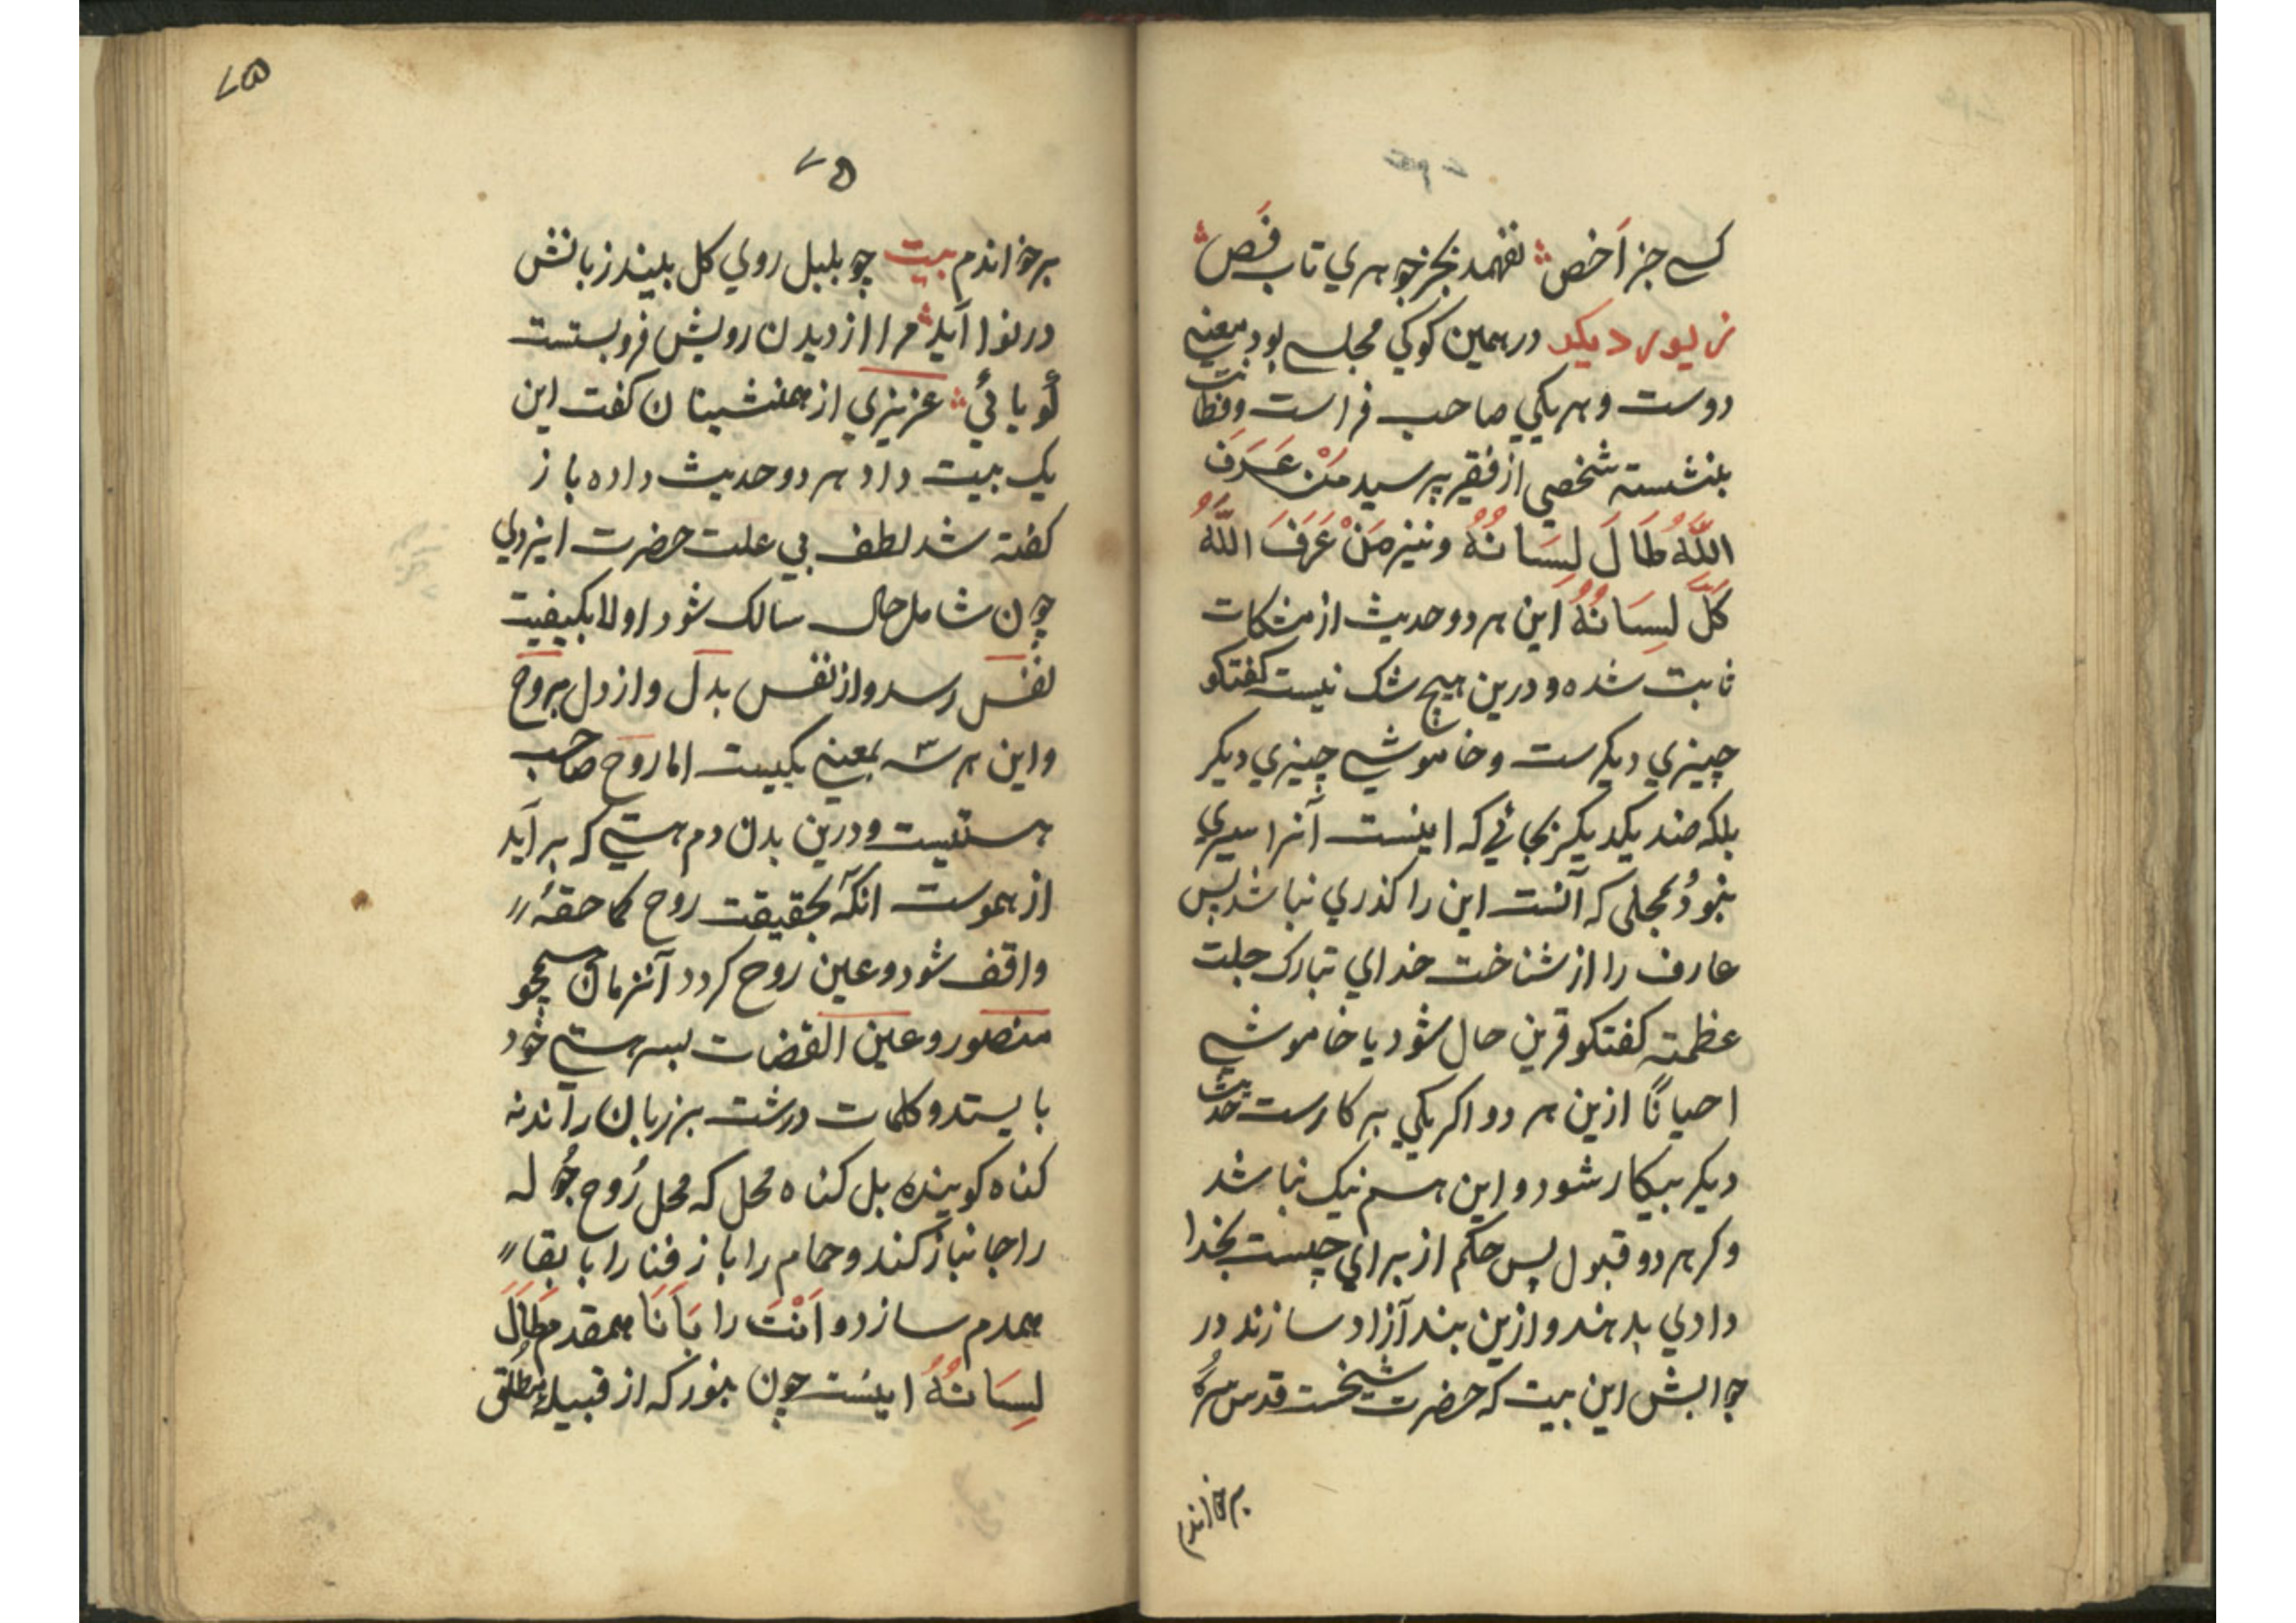 کسے جز اَخص نفهمد بجز جوهري تاب فَص
زیور دیکر در همین کوکي مجلسے بود معنے
دوست و هریکي صاحب فراست و فطانت
بنشسته شخصي از فقیر پرسید مَنْ عَرَفَ
اللّٰهَ طَالَ لِسَانُهُ و نیز مَنْ عَرَفَ اللّٰهَ
کَلَّ لِسَانُهُ این هر دو حدیث از مشکات
ثابت شده و درین هیچ شک نیست کفتکو
چیزي دیکرست و خاموشے چیزي دیکر
بلکه ضد یکدیکر بجائي که اینست آنرا سیري
نبوَد و محلی که آنست این را کذري نباشد پس
عارف را از شناخت خداي تبارک جلت
عظمته کفتکو قرین حال شود یا خاموشے
احیاناً ازین هر دو اکر یکي بر کارست حدیث
دیکر بیکار شود و این هم نیک نباشد
وکر هر دو قبول پس حکم از براي چیست بخدا
دادي بدهند و ازین بند آزاد سازند در
جوابش این بیت که حضرت شیخست قدس سره
برخواندم
۷۵
۷۵
برخواندم بیت چو بلبل روي کل بیند زبانش
در نوا آید مرا از دیدن رویش فروبستست
کَویائي عزیزي از همنشینان کفت این
یک بیت داد هر دو حدیث داده باز
کفته شد لطف بي علت حضرت ایزدي
چون شامل حال سالک شود اولا بکیفیت
نفس رسد و از نفس بدل و از دل بروح
و این هر سه بمعنے یکیست اما روح صاحب
هستیست و درین بدن دم هستے که برآید
از هموست انکه بحقیقت روح کما حقهُ
واقف شود و عین روح کردد آنزمان همچو
منصور و عین القضات بسر هستے خود
بایستد و کلمات درشت بر زبان راند نه
کناه کوینده بل کناه محل که محل رُوح جُو له
را جانباز کند و حمام را باز فنا را با بقا
همدم سازد و اَنْتَ را بَا اَنَا همقدم طَالَ
لِسَانُهُ اینست چون بنور که از قبیلهٔ مطلق